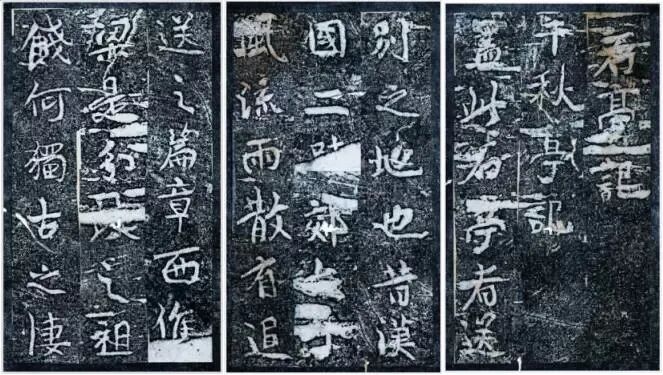 石亭記
千秋亭記
蓋此石亭者送
別之地也昔漢
國二郊子
風流雨散有追
送之篇章西
梁是分之祖
餞何獨古之悽